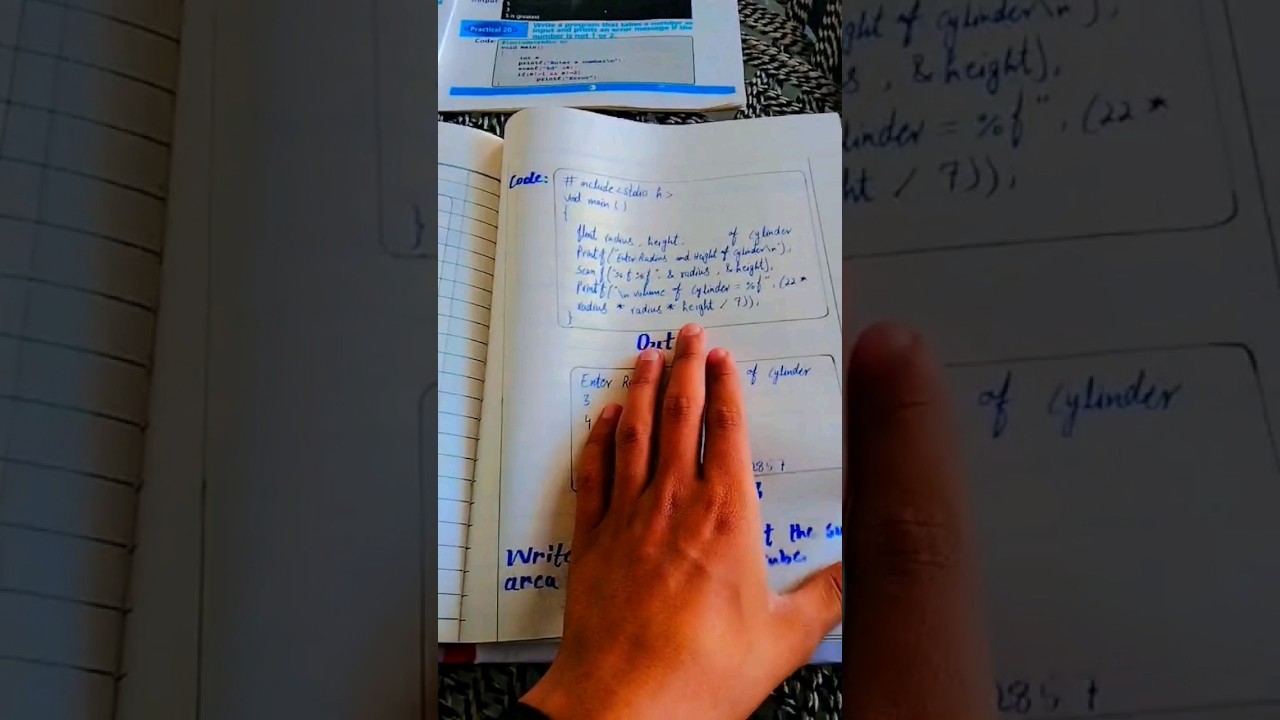 5 is greatest
Practical 20
Write a program that takes a number as
input and prints an error message if the
number is not 1 or 2.
Code:
void main()
int
printf("Enter a number\n");
printf("Error");
Code:
# include<stdio h>
void main ()
{
float radius, height. of cylinder
Printf("Enter Radius and Height of Cylinder\n");
Scanf("%f %f", & radius, &height);
Printf("\n volume of Cylinder = %f", (22 *
radius * radius * height / 7));
}
Out
Enter of cylinder
3
4
2857
Write t the su
area ube.
ght of Cylinder\n");
, &height);
linder = %f", (22 *
ht / 7));
}
of cylinder
2857